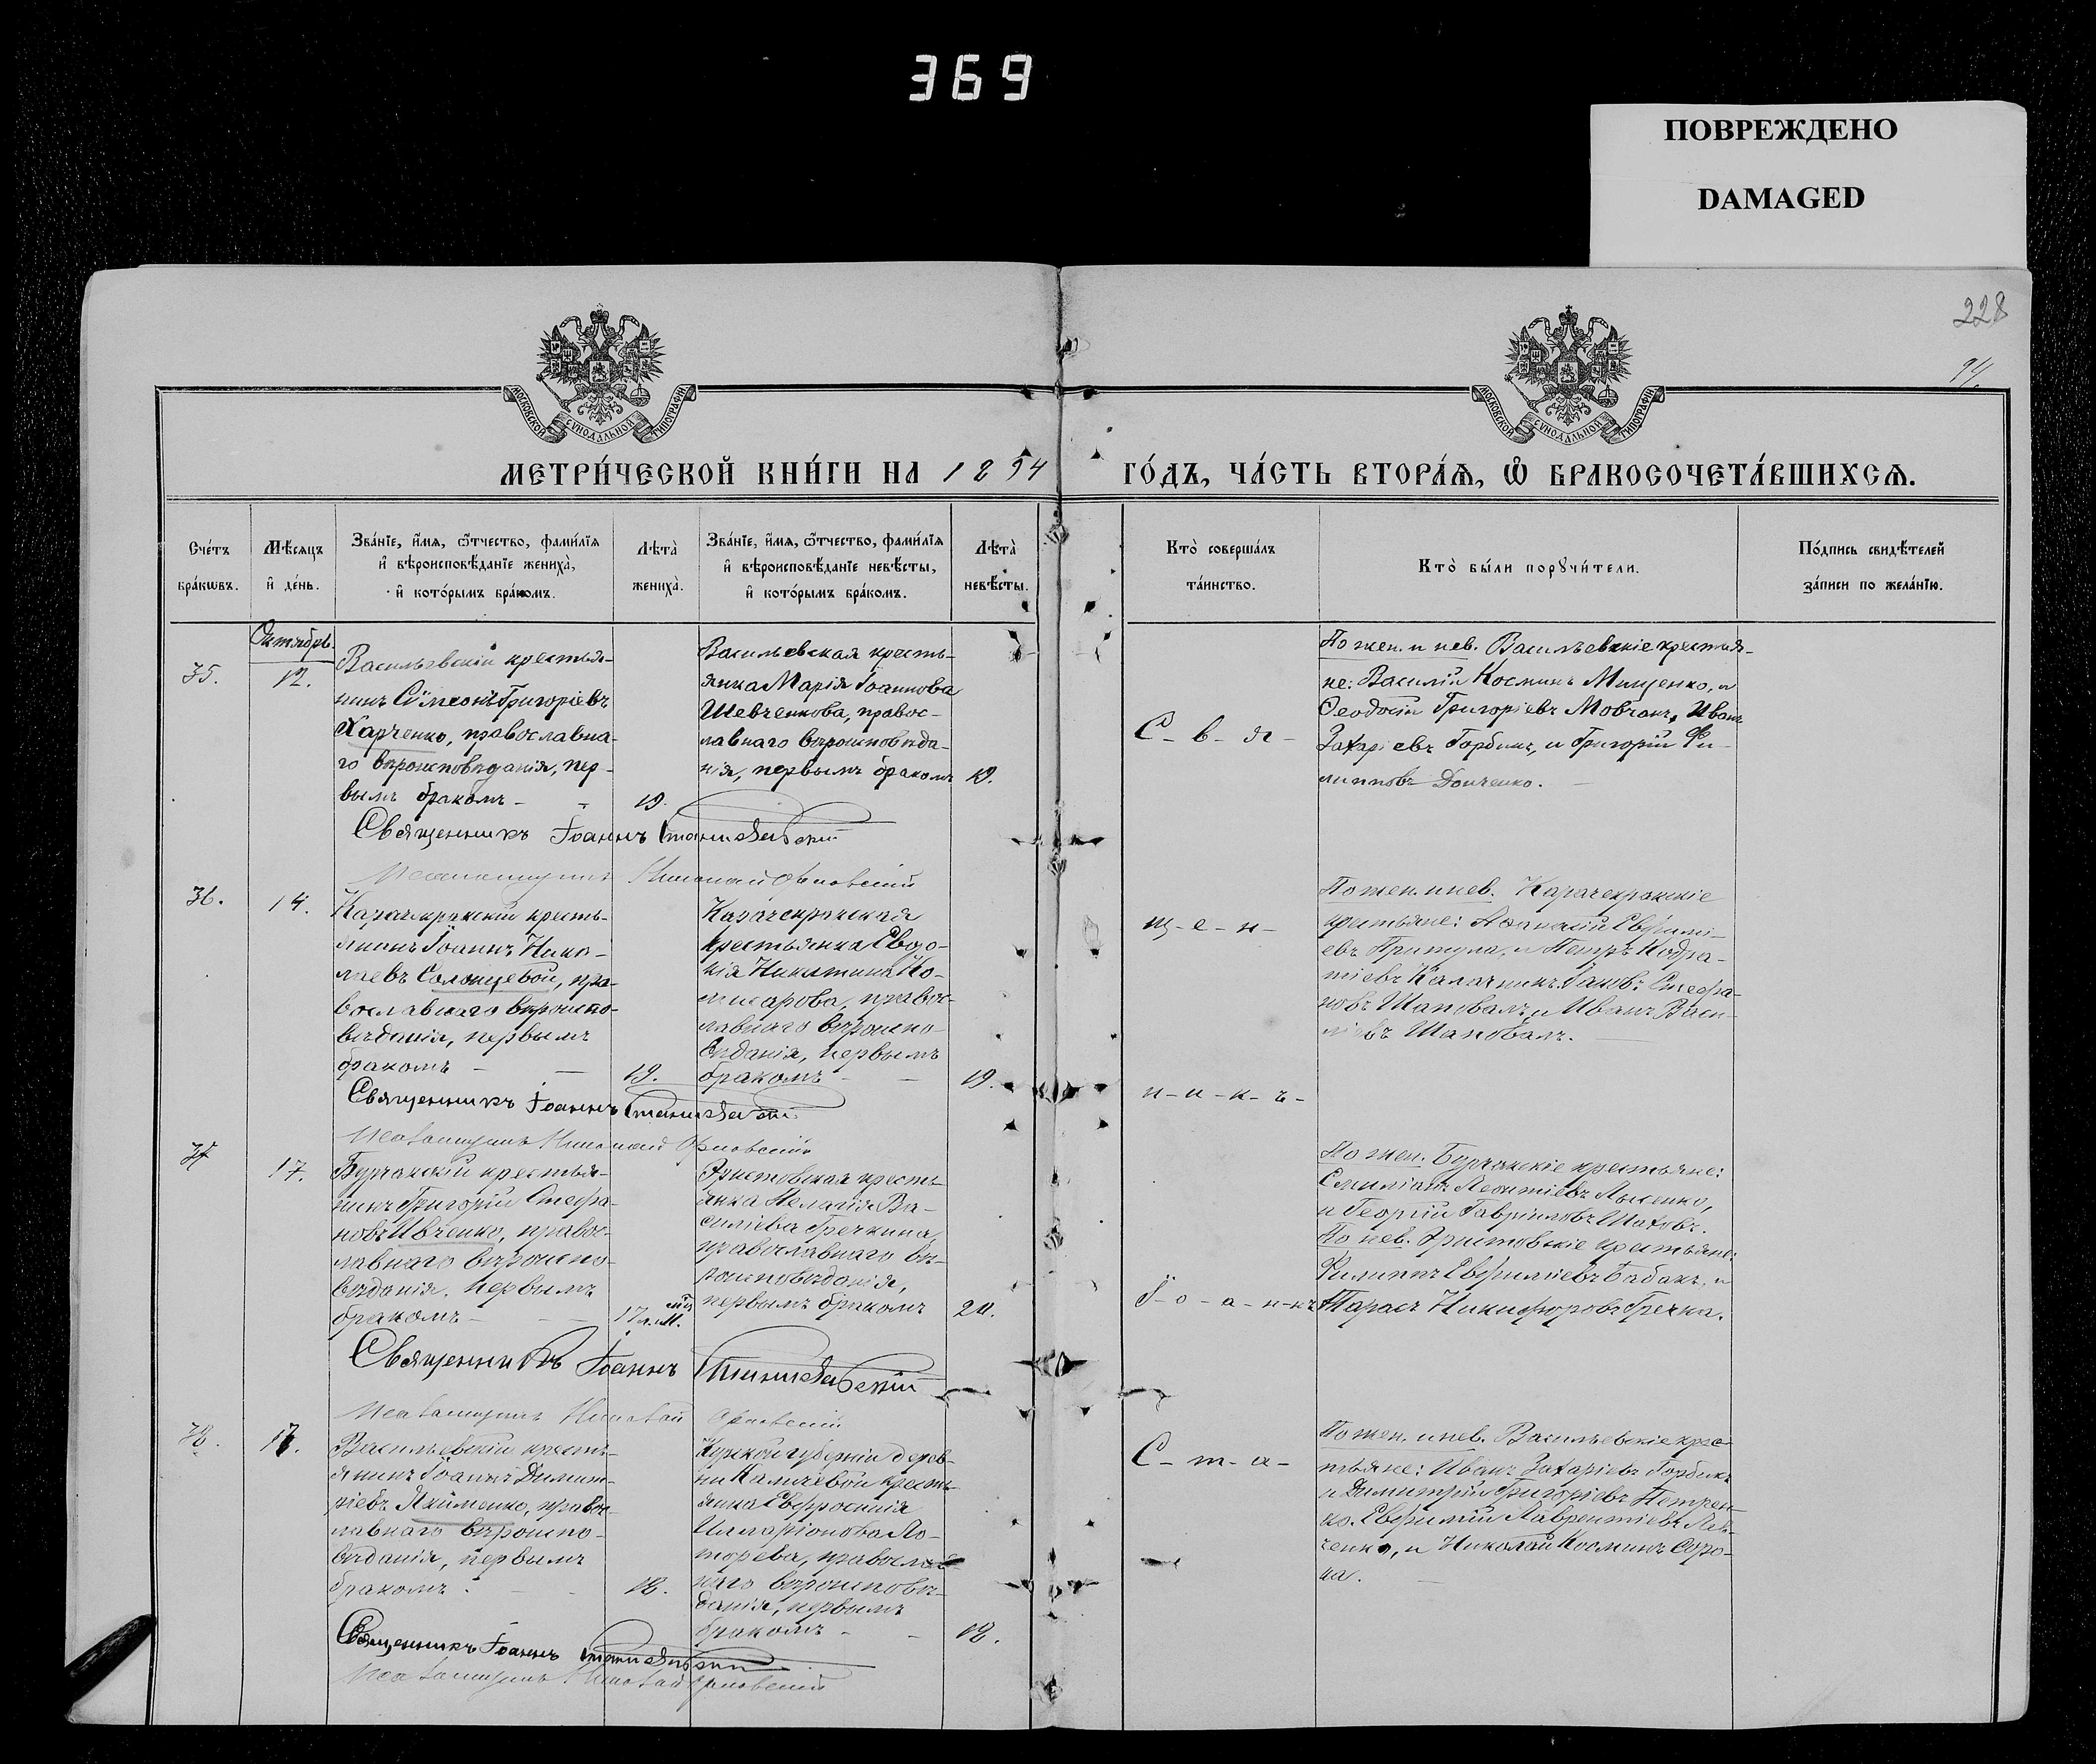 369
ПОВРЕЖДЕНО
DAMAGED
228
94.
МОСКОВСКОЙ СУНОДАЛЬНОЙ ТИПОГРАФІИ
МОСКОВСКОЙ СУНОДАЛЬНОЙ ТИПОГРАФІИ
МЕТРИ́ЧЕСКОЙ КНИ́ГИ НА 1894 ГО́ДЪ, ЧА́СТЬ ВТОРА́Ѧ, Ѽ БРАКОСОЧЕТА́ВШИХСѦ.
Сче́тъ
бра́кѡвъ.
Мѣ́сѧцъ
и҆ де́нь.
Зва́нїе, и҆́мѧ, ѻ҆́тчество, фами́лїѧ
и҆ вѣроисповѣ́данїе жениха̀,
и҆ кото́рымъ бра́комъ.
Лѣта̀
жениха̀.
Зва́нїе, и҆́мѧ, ѻ҆́тчество, фами́лїѧ
и҆ вѣроисповѣ́данїе невѣ́сты,
и҆ кото́рымъ бра́комъ.
Лѣта̀
невѣ́сты.
Кто̀ соверша́лъ
та́инство.
Кто̀ бы́ли порꙋчи́тели.
По́дпись свидѣ́телей
за́писи по жела́нїю.
Октябрь.
35.
12.
Васильевскій крестья-
нинъ Сѵмеонъ Григоріевъ
Харченко, православна-
го вѣроисповѣданія, пер-
вымъ бракомъ - -
19.
Васильевская кресть-
янка Марія Іоаннова
Шевченкова, правос-
лавнаго вѣроисповѣда-
нія, первымъ бракомъ
19.
С - в - я -
По жен. и нев. Васильевскіе крестья-
не: Василій Косминъ Мищенко, и
Ѳеодосій Григоріевъ Мовчанъ, Иванъ
Захаріевъ Горбикъ, и Григорій Фи-
липповъ Донченко.
Священникъ Іоаннъ Станиславскій
Псаломщикъ Николай Орловскій
36.
14.
Карачекракскій кресть-
янинъ Іоаннъ Нико-
лаевъ Солонцевой, пра-
вославнаго вѣроиспо-
вѣданія, первымъ
бракомъ - -
19.
Карачекракская
крестьянка Евдо-
кія Никитина Ко-
мисарова, правос-
лавнаго вѣроиспо-
вѣданія, первымъ
бракомъ - -
19.
щ - е - н -
По жен. и нев. Карачекракскіе
крестьяне: Аѳанасій Евѳимі-
евъ Притула, и Петръ Кодра-
тіевъ Калачникъ. Іаковъ Стефа-
новъ Шаповалъ, и Иванъ Васи-
ліевъ Шаповалъ.
Священникъ Іоаннъ Станиславскій
н - и - к - ъ -
Псаломщикъ Николай Орловскій
37
17.
Бурчакскій крестья-
нинъ Григорій Стефа-
новъ Ивченко, правос-
лавнаго вѣроиспо-
вѣданія, первымъ
бракомъ - -
Эристовская кресть-
янка Пелагія Ва-
силіева Гречкина,
православнаго вѣ-
роисповѣданія,
первымъ бракомъ
І - о - а - н - нъ
По жен. Бурчакскіе крестьяне:
Емиліанъ Леонтіевъ Лысенко,
и Георгій Гавріиловъ Шаховъ.
По нев. Эристовскіе крестьяне:
Филиппъ Евфиміевъ Бабакъ, и
Тарасъ Никифоровъ Гречка.
Священникъ Іоаннъ Станиславскій
Псаломщикъ Николай Орловскій
38.
17.
Васильевскій кресть-
янинъ Іоаннъ Димит-
ріевъ Якименко, правос-
лавнаго вѣроиспо-
вѣданія, первымъ
бракомъ.
18.
Курской губерніи дерев-
ни Камчевой кресть-
янка Евфросинія
Иларіонова
православ-
наго вѣроисповѣ-
данія, первымъ
бракомъ - -
18.
С - т - а -
По жен. и нев. Васильевскіе крес-
тьяне: Иванъ Захаріевъ Горбикъ
и Димитрій Григоріевъ Петрен-
ко. Евфимій Лаврентіевъ Лев-
ченко, и Николай Косминъ Соро-
ка.
Священникъ Іоаннъ Станиславскій
Псаломщикъ Николай Орловскій